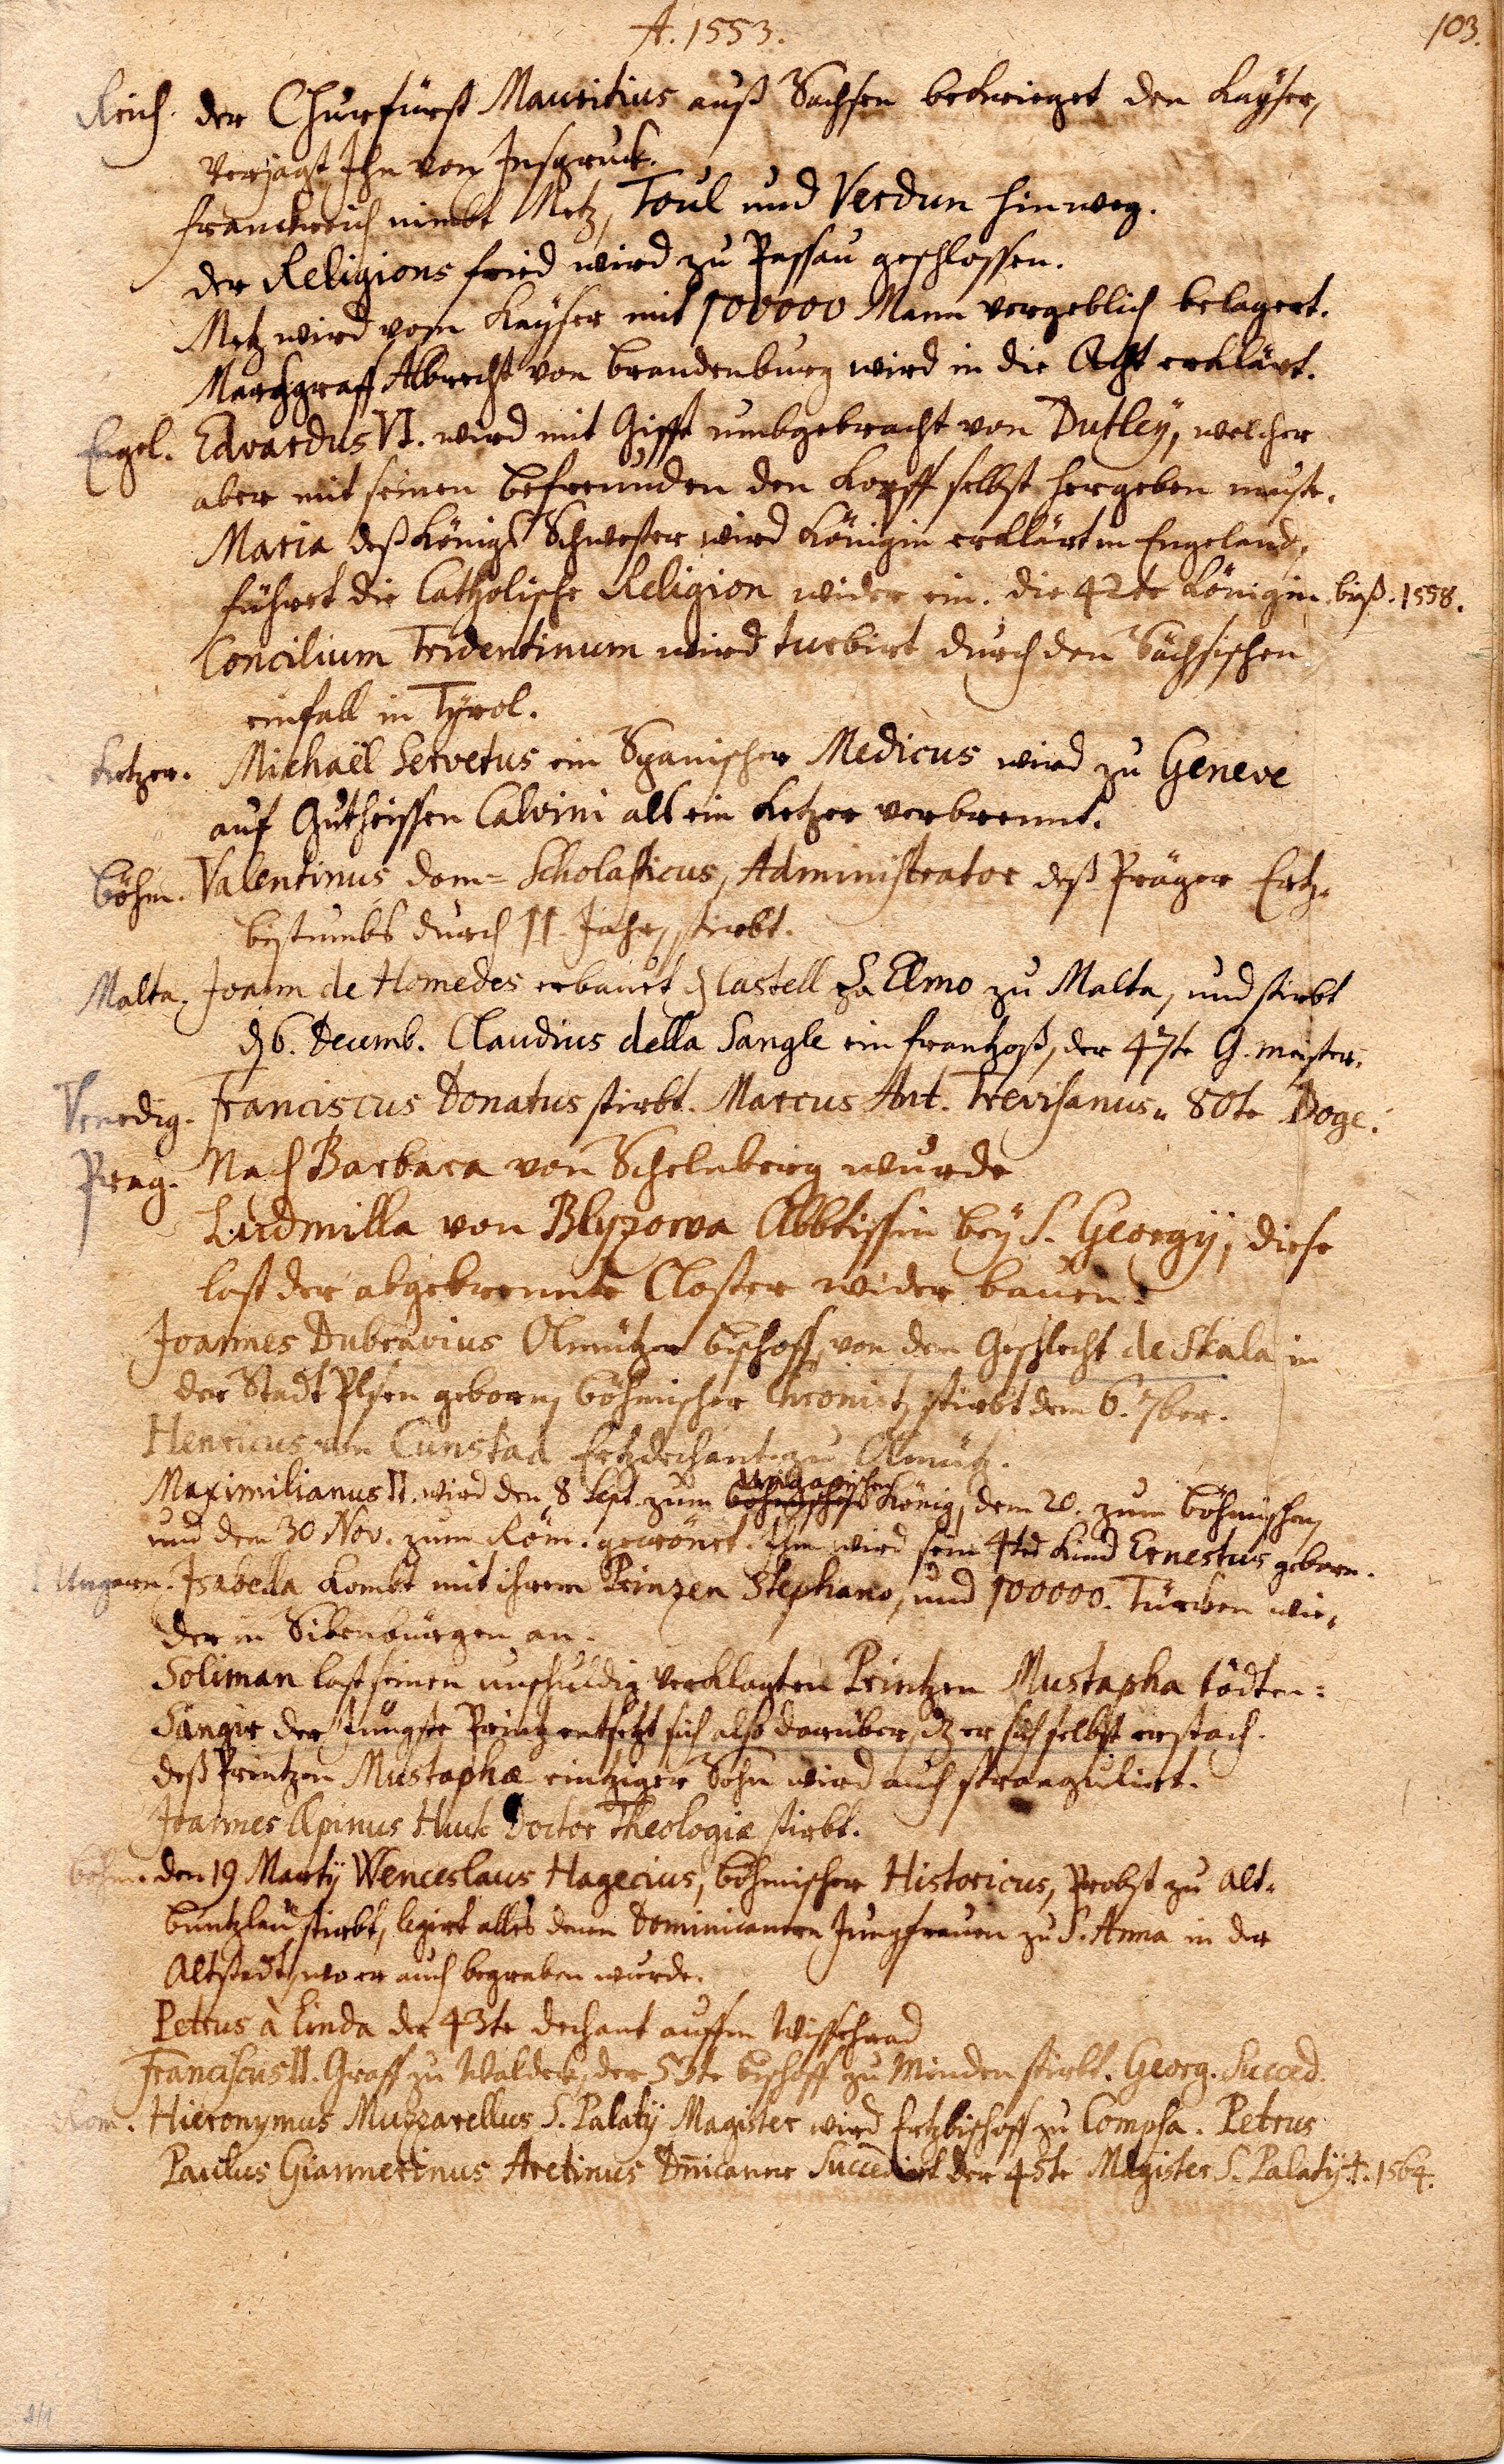 A. 1553.
103.
Reich. der Churfürst Mauritius auß Sachsen bekrieget den Kaÿser,
verjagt Ihn von Insgruck.
Franckreich nimbt Metz, Toul und Verdun hinweg.
der Religions fried wird zu Passau geschlossen.
Metz wird vom Kaÿser mit 100000 Mann vergeblich belagert.
Marchgraff Albrecht von brandenburg wird in die Acht erklärt.
Engel. Edvardus VI. wird mit Gifft umbgebracht von Dutleÿ, welcher
aber mit seinen befreunden den Kopff selbst hergeben muste.
Maria deß Königs Schwester wird Königin erklärt in Engeland,
führet die Catholische Religion wider ein. die 42te Königin. biß. 1558.
Concilium Tridentinum wird turbirt durch den Sächsischen
einfall in Tÿrol.
Ketzer. Michaël Servetus ein Spanischer Medicus wird zu Geneve
auf Gutheissen Calvini alß ein Ketzer verbrennt.
Böhm. Valentinus Dom= Scholasticus, Administrator deß Präger Ertz=
bistumbs durch 11. Jahr, stirbt.
Malta. Joann de Homedes erbauet dz Castell Sa Elmo zu Malta, und stirbt
d. 6. Decemb. Claudius della Sangle ein frantzoß, der 47te G. meister.
Venedig. Franciscus Donatus stirbt. Marcus Ant. Trevisanus. 80te Doge.
Prag. Nach Barbara von Schelnberg wurde
Ludmilla von Blyzowa Abbtissin beÿ S. Georgÿ, diese
last der abgebrennte Closter wider bauen.
Joannes Dubravius Olmützer bischoff, von dem Geschlecht de Skala in
der Stadt Plsen geborn, böhmischer Chronist, stirbt dem 6. 7ber.
Henricus von Cunstad Ertzdechant zu Olmütz.
Maximilianus II. wird den 8 Sept. zum böhmischen Ungarischen König, dem 20. zum böhmischen,
und dem 30 Nov. zum Röm. gecrönet. Ihm wird sein 4tes Kind Ernestus geborn.
Ungarn. Isabella kombt mit ihrem Prinzen Stephano, und 100000. Türcken wie=
der in Sibenbürgen an.
Soliman last seinen unschuldig verklagten Printzen Mustapha tödten:
Sangir der Jüngste Printz entsetzt sich also darüber, dz er sich selbst erstach.
deß Printzen Mustaphæ eintziger Sohn wird auch stranguliert.
Joannes Æpinus Huk Doctor Theologiæ stirbt.
böhm. den 19 Martÿ Wenceslaus Hagecius, böhmischer Historicus, Probst zu Alt=
buntzlau stirbt, legirt alles denen Dominicanern Jungfrauen zu S. Anna in der
Altstadt, wo er auch begraben wurde.
Petrus à Linda der 43te dechant auffm Wissehrad
Franciscus II. Graff zu Waldek, der 53te bischoff zu Minden stirbt. Georg. Succed.
Rom. Hieronymus Muzzarellus S. Palatÿ Magister wird Ertzbischoff zu Compsa. Petrus
Paulus Giannerinus Aretinus Dnicaner Succediert der 45te Magister S. Palatÿ †. 1564.